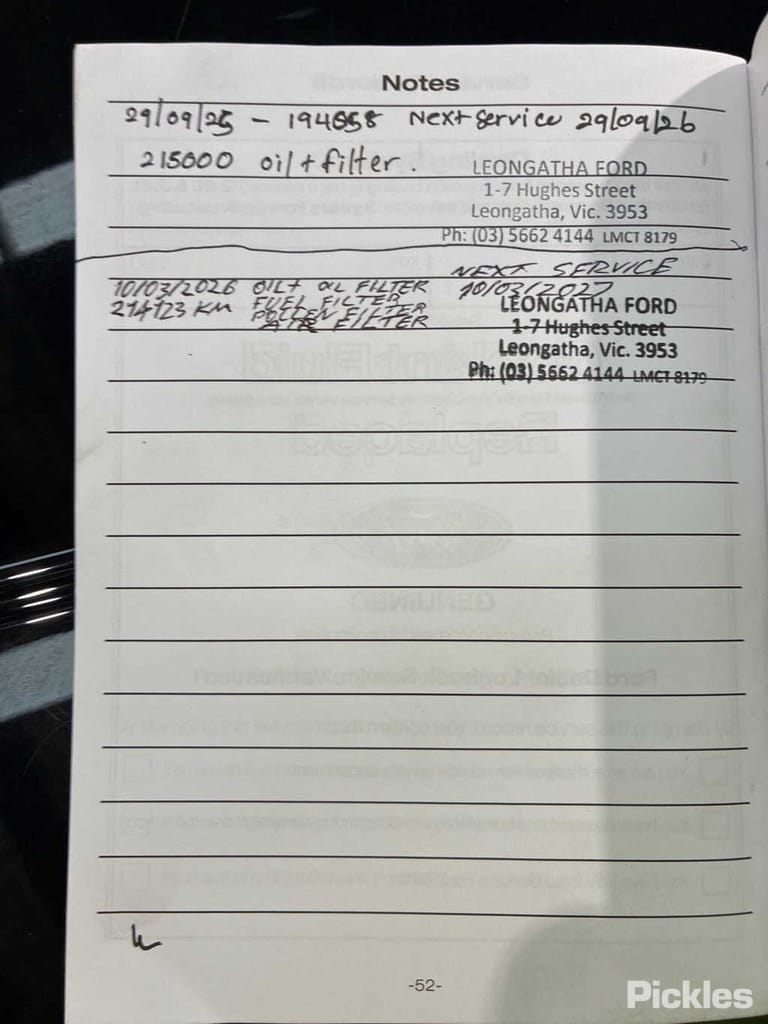 Notes
29/09/25 - 194658 Next service 29/09/26
215000 oil + filter.
LEONGATHA FORD
1-7 Hughes Street
Leongatha, Vic. 3953
Ph: (03) 5662 4144 LMCT 8179
NEXT SERVICE
10/03/2026 OIL + OIL FILTER 10/03/2027
214123 KM FUEL FILTER
POLLEN FILTER
AIR FILTER
LEONGATHA FORD
1-7 Hughes Street
Leongatha, Vic. 3953
Ph: (03) 5662 4144 LMCT 8179
-52-
Pickles